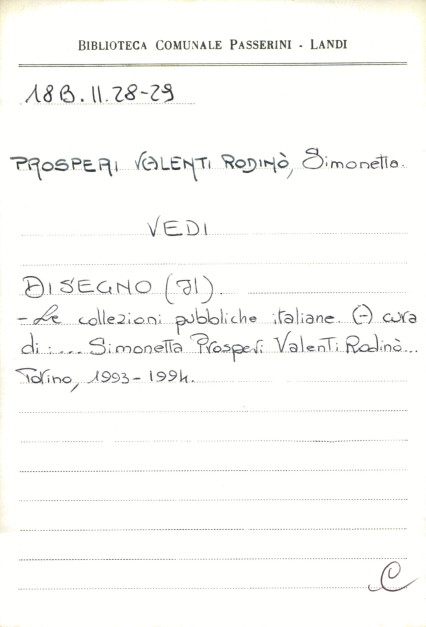 BIBLIOTECA COMUNALE PASSERINI - LANDI
18B.II.28-29
PROSPERI VALENTI RODINÒ, Simonetta.
VEDI
DISEGNO (Il).
- Le collezioni pubbliche italiane. (-) cura
di: .... Simonetta Prosperi Valenti Rodinò...
Torino, 1993-1994.
C